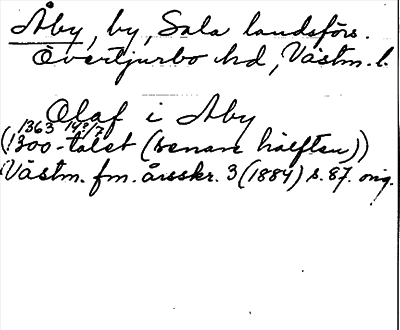 Åby, by, Sala landsförs.
Övertjurbo hd, Västm. l.
Olaf i Aby
1363 14?/7
(1300-talet (senare hälften))
Västm. fm. årsskr. 3 (1884) s. 87. orig.